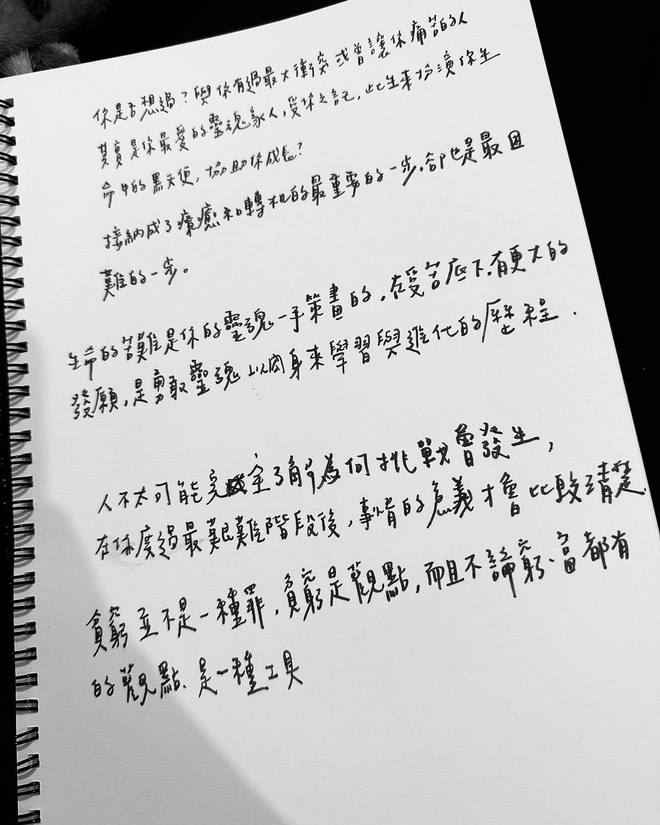 你是否想過？與你有過最大衝突或曾讓你痛苦的人
其實是你最愛的靈魂家人，受你之託，此生來扮演你生
命中的黑天使，協助你成長？
接納成了療癒和轉机的最重要的一步，卻也是最困
難的一步。
生命的苦難是你的靈魂一手策畫的，在受苦底下，有更大的
發願，是勇敢靈魂以肉身來學習與進化的歷程．
人不太可能完全了解為何挑戰會發生，
在你度過最艱難階段後，事情的意義才會比較清楚．
貧窮並不是一種罪，貧窮是觀點，而且不論窮、富都有
的觀點、是一種工具